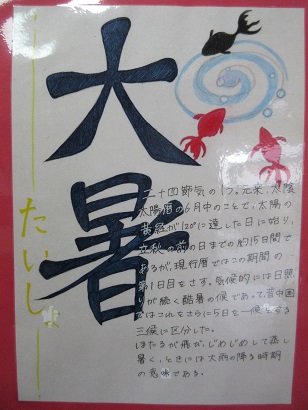 大暑
たいしょ
二十四節気の1つ。元来、太陰
太陽暦の6月中のことで、太陽の
黄経が120°に達した日に始り、
立秋の前の日までの約15日間で
あるが、現行暦ではこの期間の
第1日目をさす。気候的には日照
りが続く酷暑の候であって、昔中国
ではこれをさらに5日を一候とする
三候に区分した。
ほたるが飛び、じめじめして蒸し
暑く、ときには大雨の降る時期
の意味である。